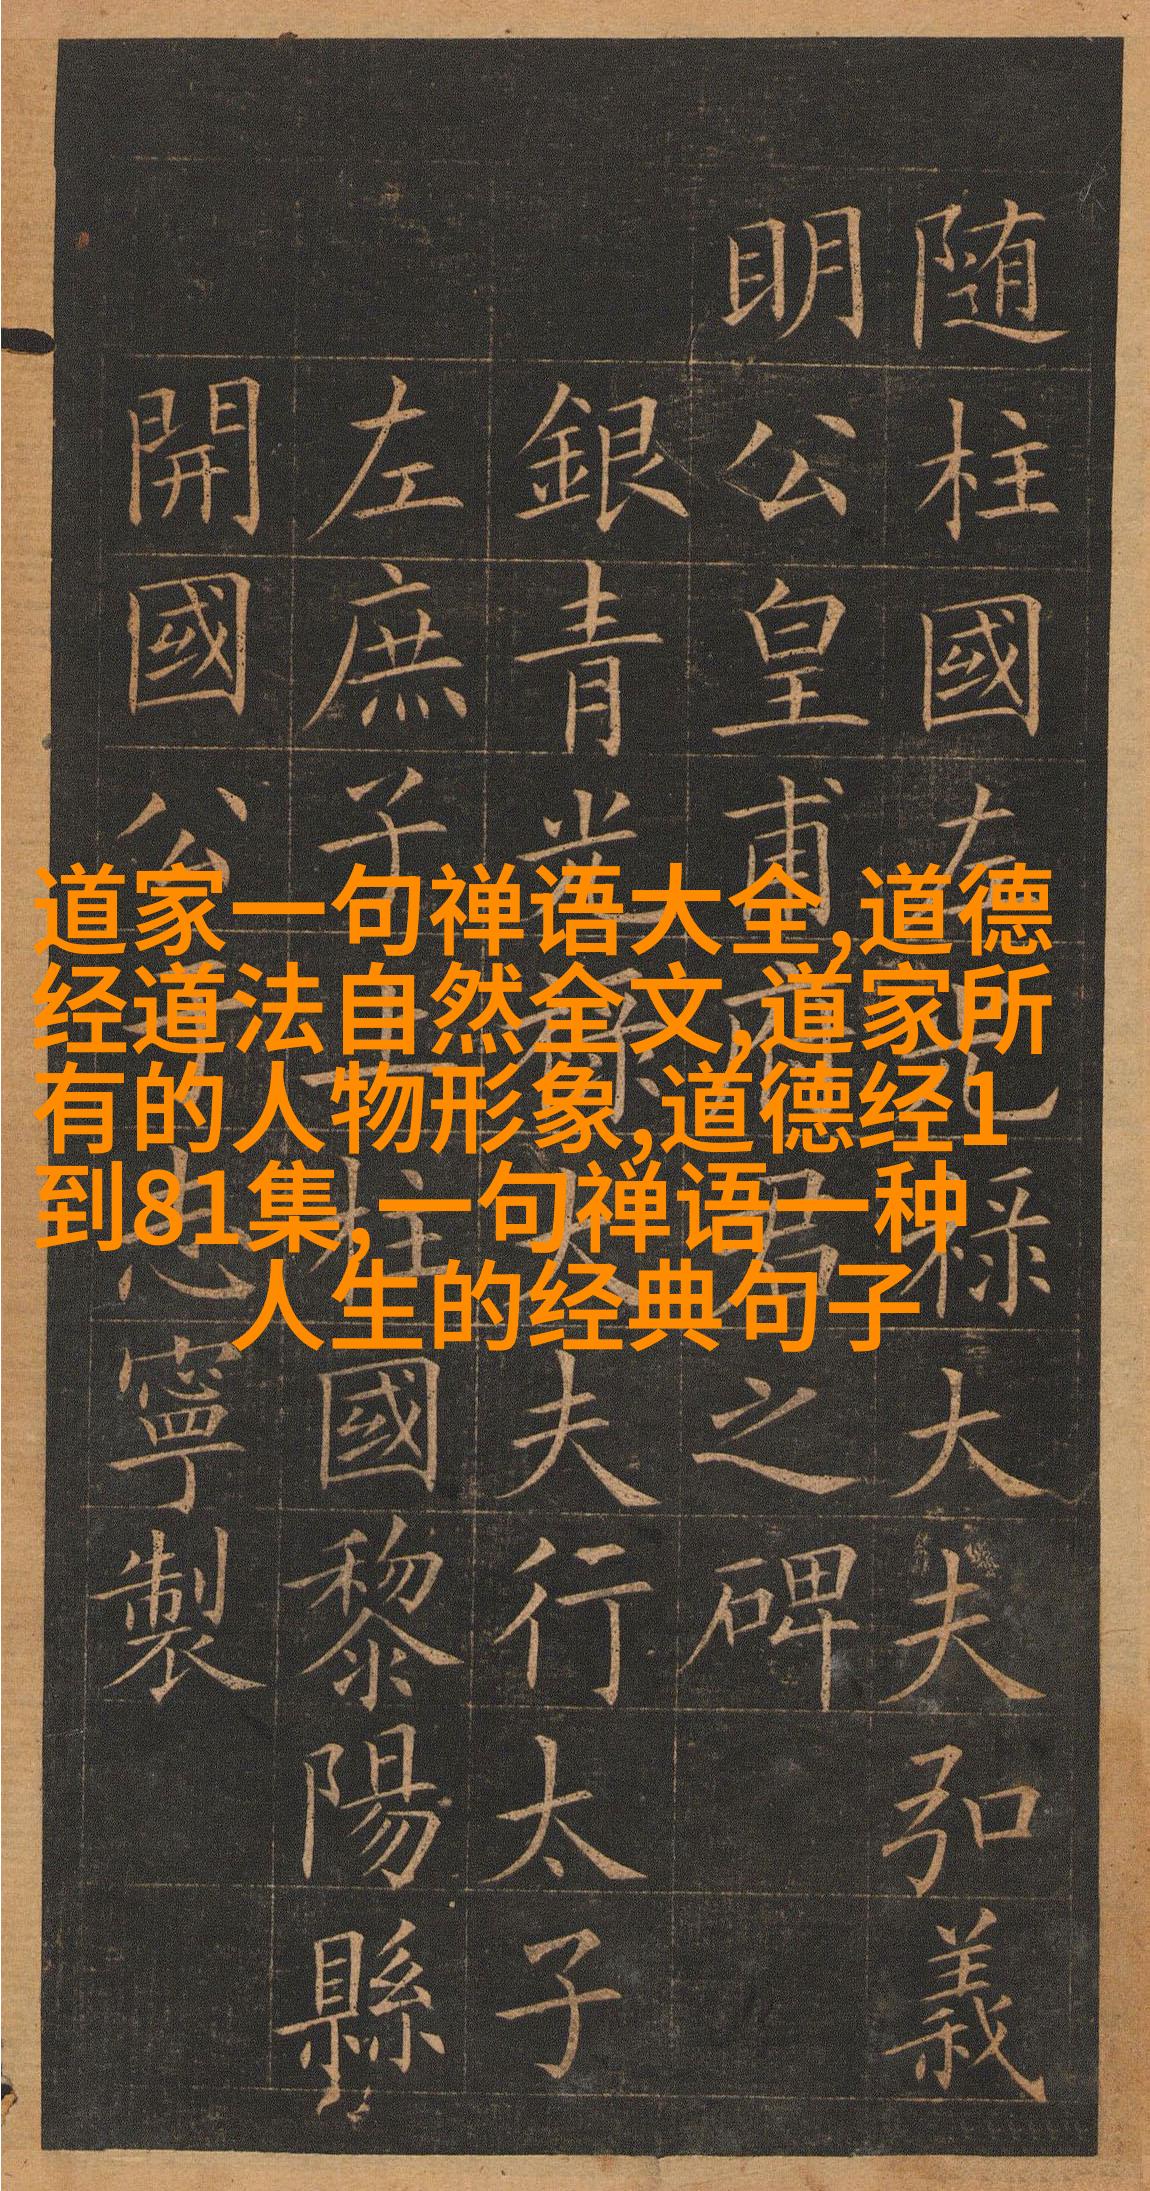 随柱國左光祿大夫弘義
明公皇甫府君之碑
銀青光祿大夫行太子
左庶子上柱國黎陽縣
開國公于志寧製
道家一句禅语大全,道德
经道法自然全文,道家所
有的人物形象,道德经1
到81集,一句禅语一种
人生的经典句子